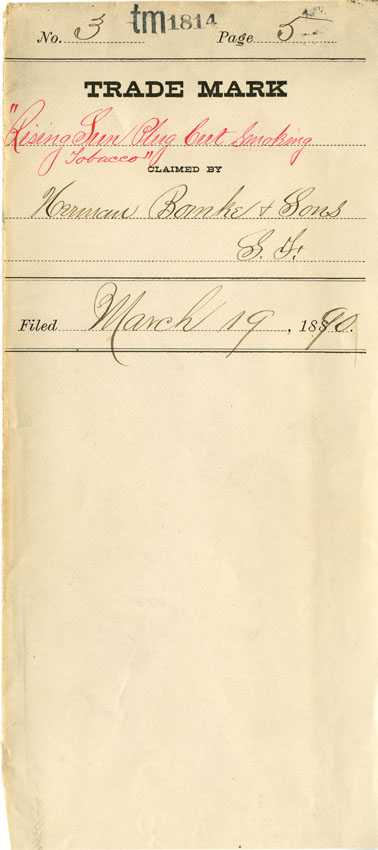 No. 3 tm1814 Page 5
TRADE MARK
"Rising Sun Plug Cut Smoking
Tobacco"
CLAIMED BY
Herman Bomke & Sons
S. F.
Filed March 19, 1890.